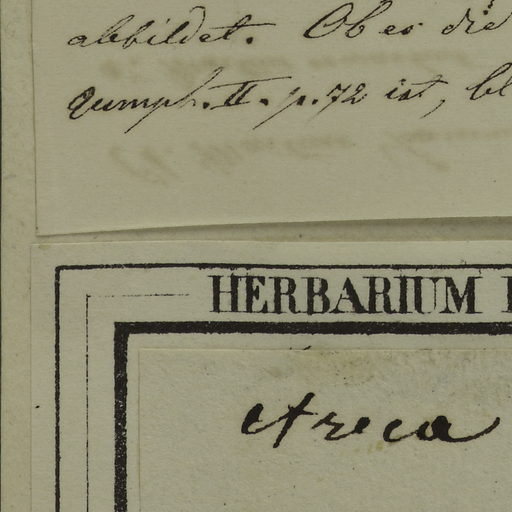 abbildet. Ob es die
Rumph. II. p. 72 ist, bl
HERBARIUM
Areca